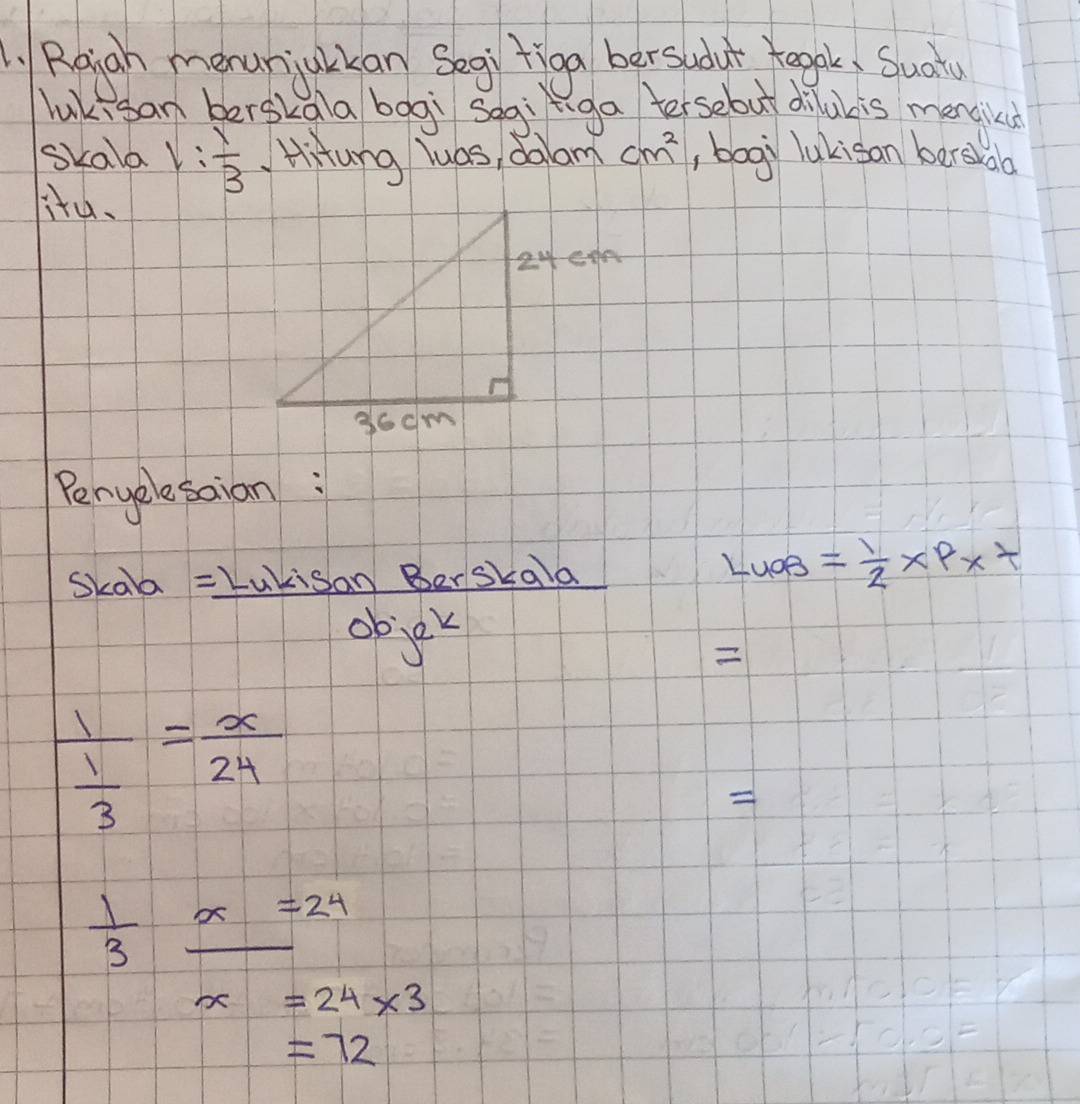 1. Rajah menunjukkan Segi tiga bersudut tegak. Suatu
lukisan berskala bagi segi tiga tersebut dilukis mengikut
skala 1 : 1/3. Hitung luas, dalam cm², bagi lukisan berskala
itu.
24 cm
36 cm
Penyelesaian :
Skala = Lukisan Berskala / Objek
Luas = 1/2 × P × t
=
1 / (1/3) = x/24
=
1/3 x = 24
x = 24 × 3
= 72